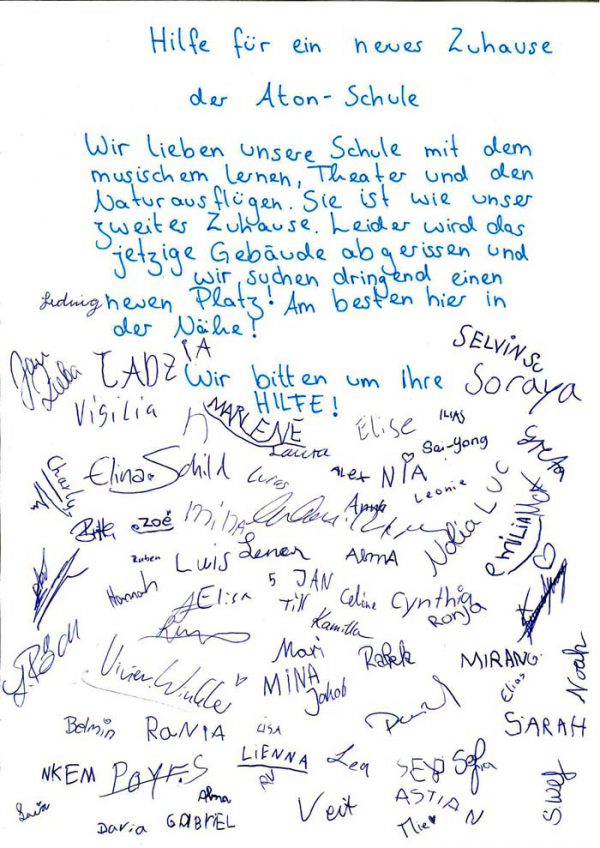 Hilfe für ein neues Zuhause
der Aton-Schule
Wir lieben unsere Schule mit dem
musischem Lernen, Theater und den
Naturausflügen. Sie ist wie unser
zweites Zuhause. Leider wird das
jetzige Gebäude abgerissen und
wir suchen dringend einen
neuen Platz! Am besten hier in
der Nähe!
Wir bitten um Ihre
HILFE!
Ludwig
TADZIA
SELVIN SC
Soraya
Visilia
MARLENE
Laura
Elise
ILIAS
Sai-Yong
Charly
Elina Schild
Lucas
Alex
NIA
Leonie
LUC
Zoé
MINA
Nolia
EMILIA
Ruben
Luis
Lenen
AlmA
Hannah
Elisa
5
JAN
Till
Celine
Cynthia
Ronja
Kamilla
Vivien Winkler
Mari
MiNA
Jakob
MIRANO
Elias
Noah
Belmin
RaNIA
LISA
SARAH
NKEM
LIENNA
Lea
Sofia
Alma
ASTIAN
Daria
GABRIEL
Veit
Mie